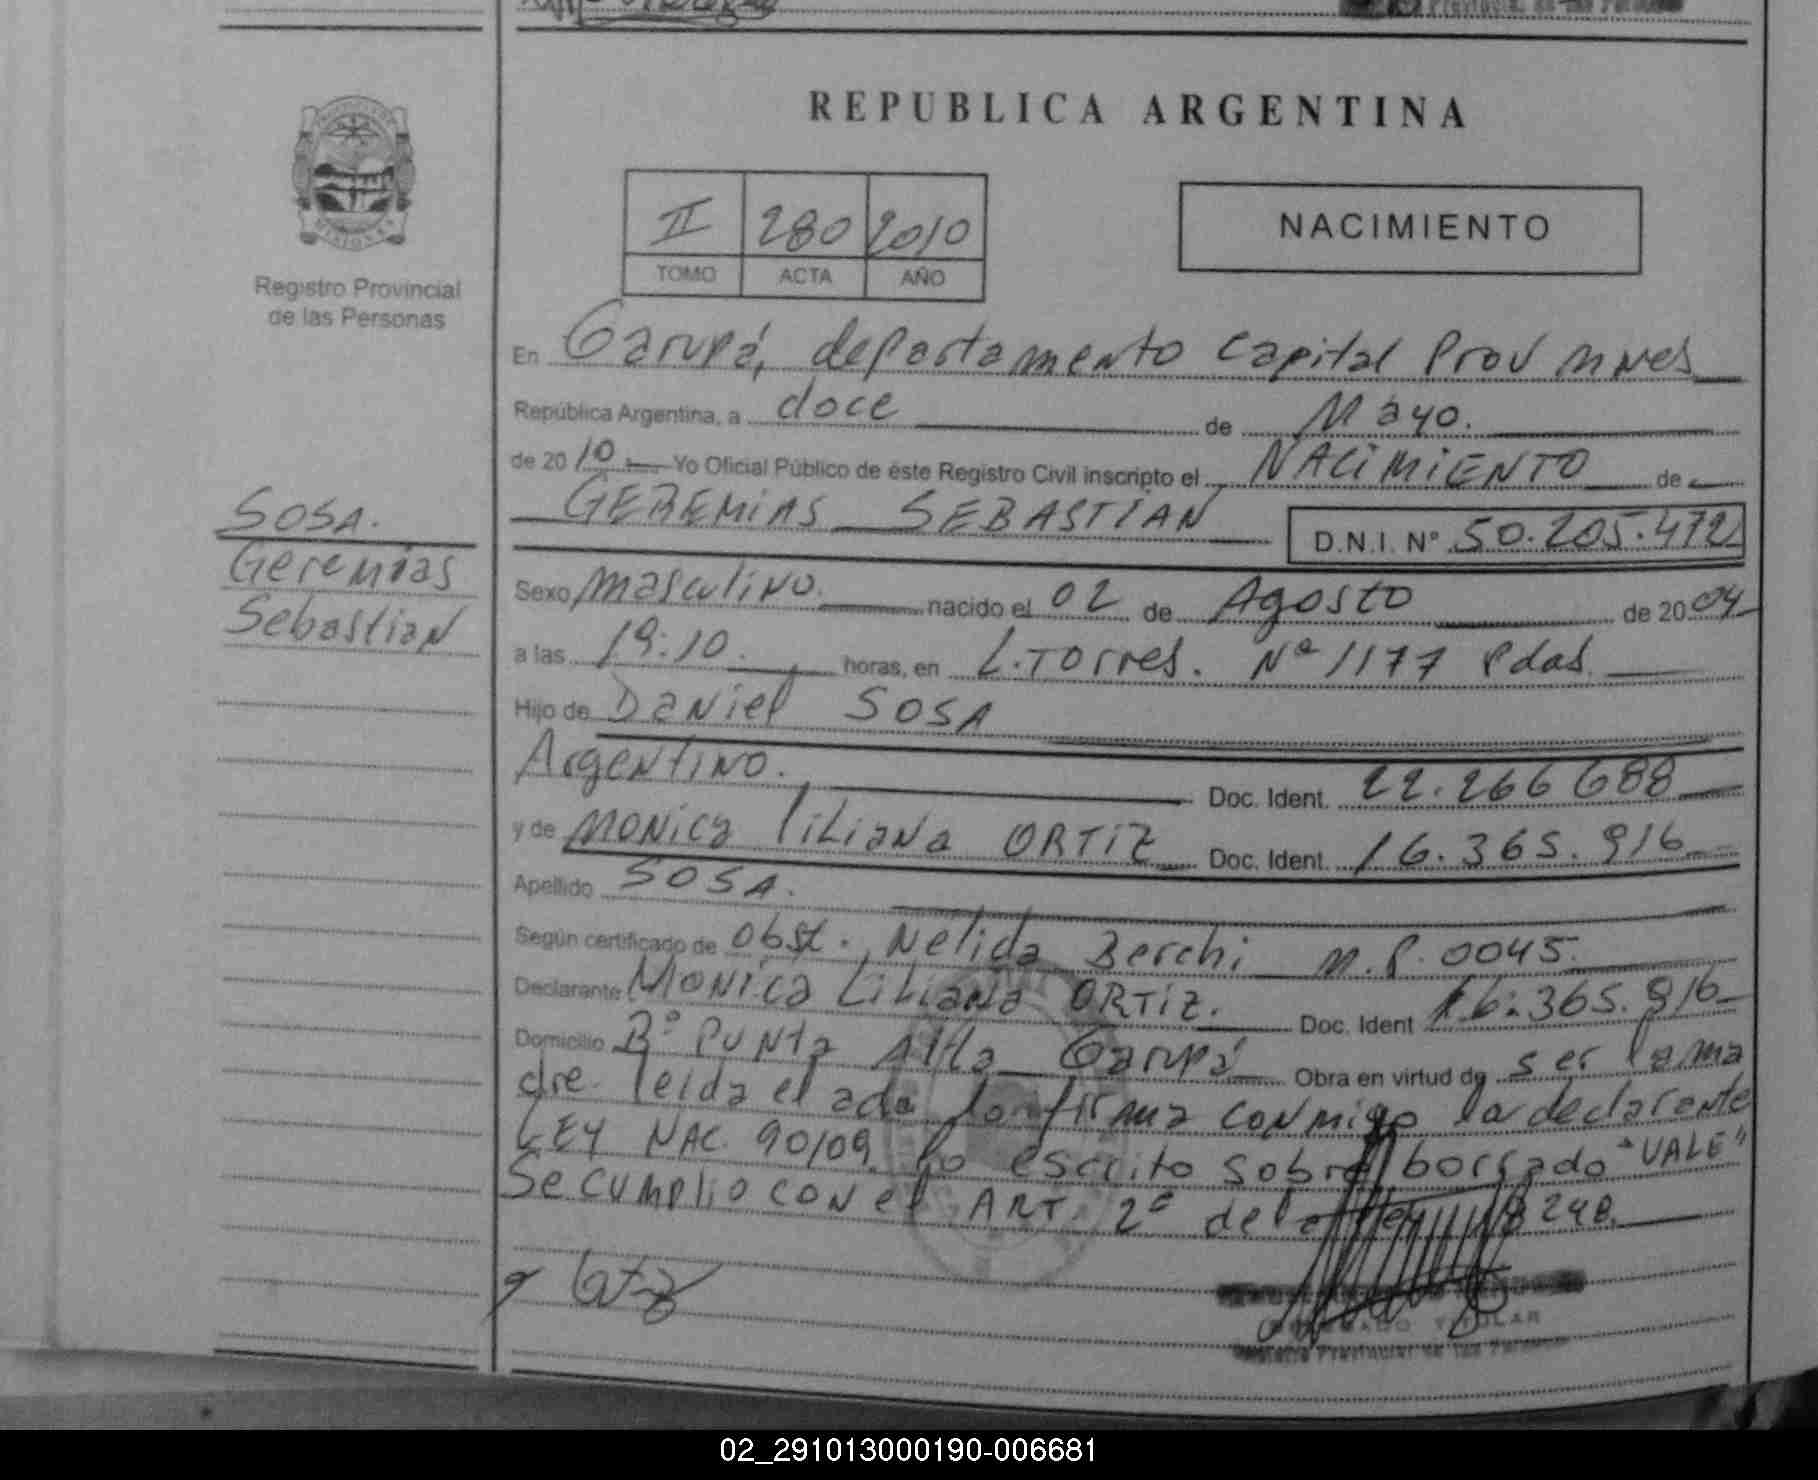 REPUBLICA ARGENTINA
II 280 2010
TOMO ACTA AÑO
NACIMIENTO
MISIONES
Registro Provincial
de las Personas
SOSA.
Geremias
Sebastian
En Garupá, departamento Capital Prov Mnes
República Argentina, a doce de Mayo.
de 2010 Yo Oficial Público de éste Registro Civil inscripto el NACIMIENTO de
GEREMIAS SEBASTIAN D.N.I. Nº 50.205.472
Sexo masculino. nacido el 02 de Agosto de 2004
a las 19:10. horas, en L. Torres. Nº 1177 Pdas.
Hijo de Daniel SOSA
Argentino. Doc. Ident. 22.266 688
y de Monica Liliana ORTIZ Doc. Ident. 16.365.916
Apellido SOSA.
Según certificado de obst. Nelida Berchi M.P. 0045.
Declarante Monica Liliana ORTIZ. Doc. Ident 16.365.916
Domicilio Bº Punta Alta Garupá Obra en virtud de ser la ma
dre. leida el acta la firma conmigo la declarante
LEY NAC. 90/09. lo escrito sobre borrado "VALE"
Se cumplio con el ART. 2º de la Ley 18248.
DELEGADO TITULAR
Registro Provincial de las Personas
02_291013000190-006681